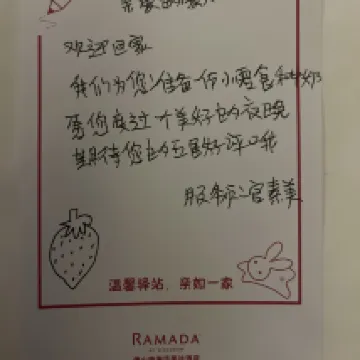 亲爱的
欢迎回家
我们为您准备一份小零食和牛奶
愿您度过一个美好的夜晚
期待您的五星好评哦
服务师：宫素美
温馨驿站，亲如一家
RAMADA